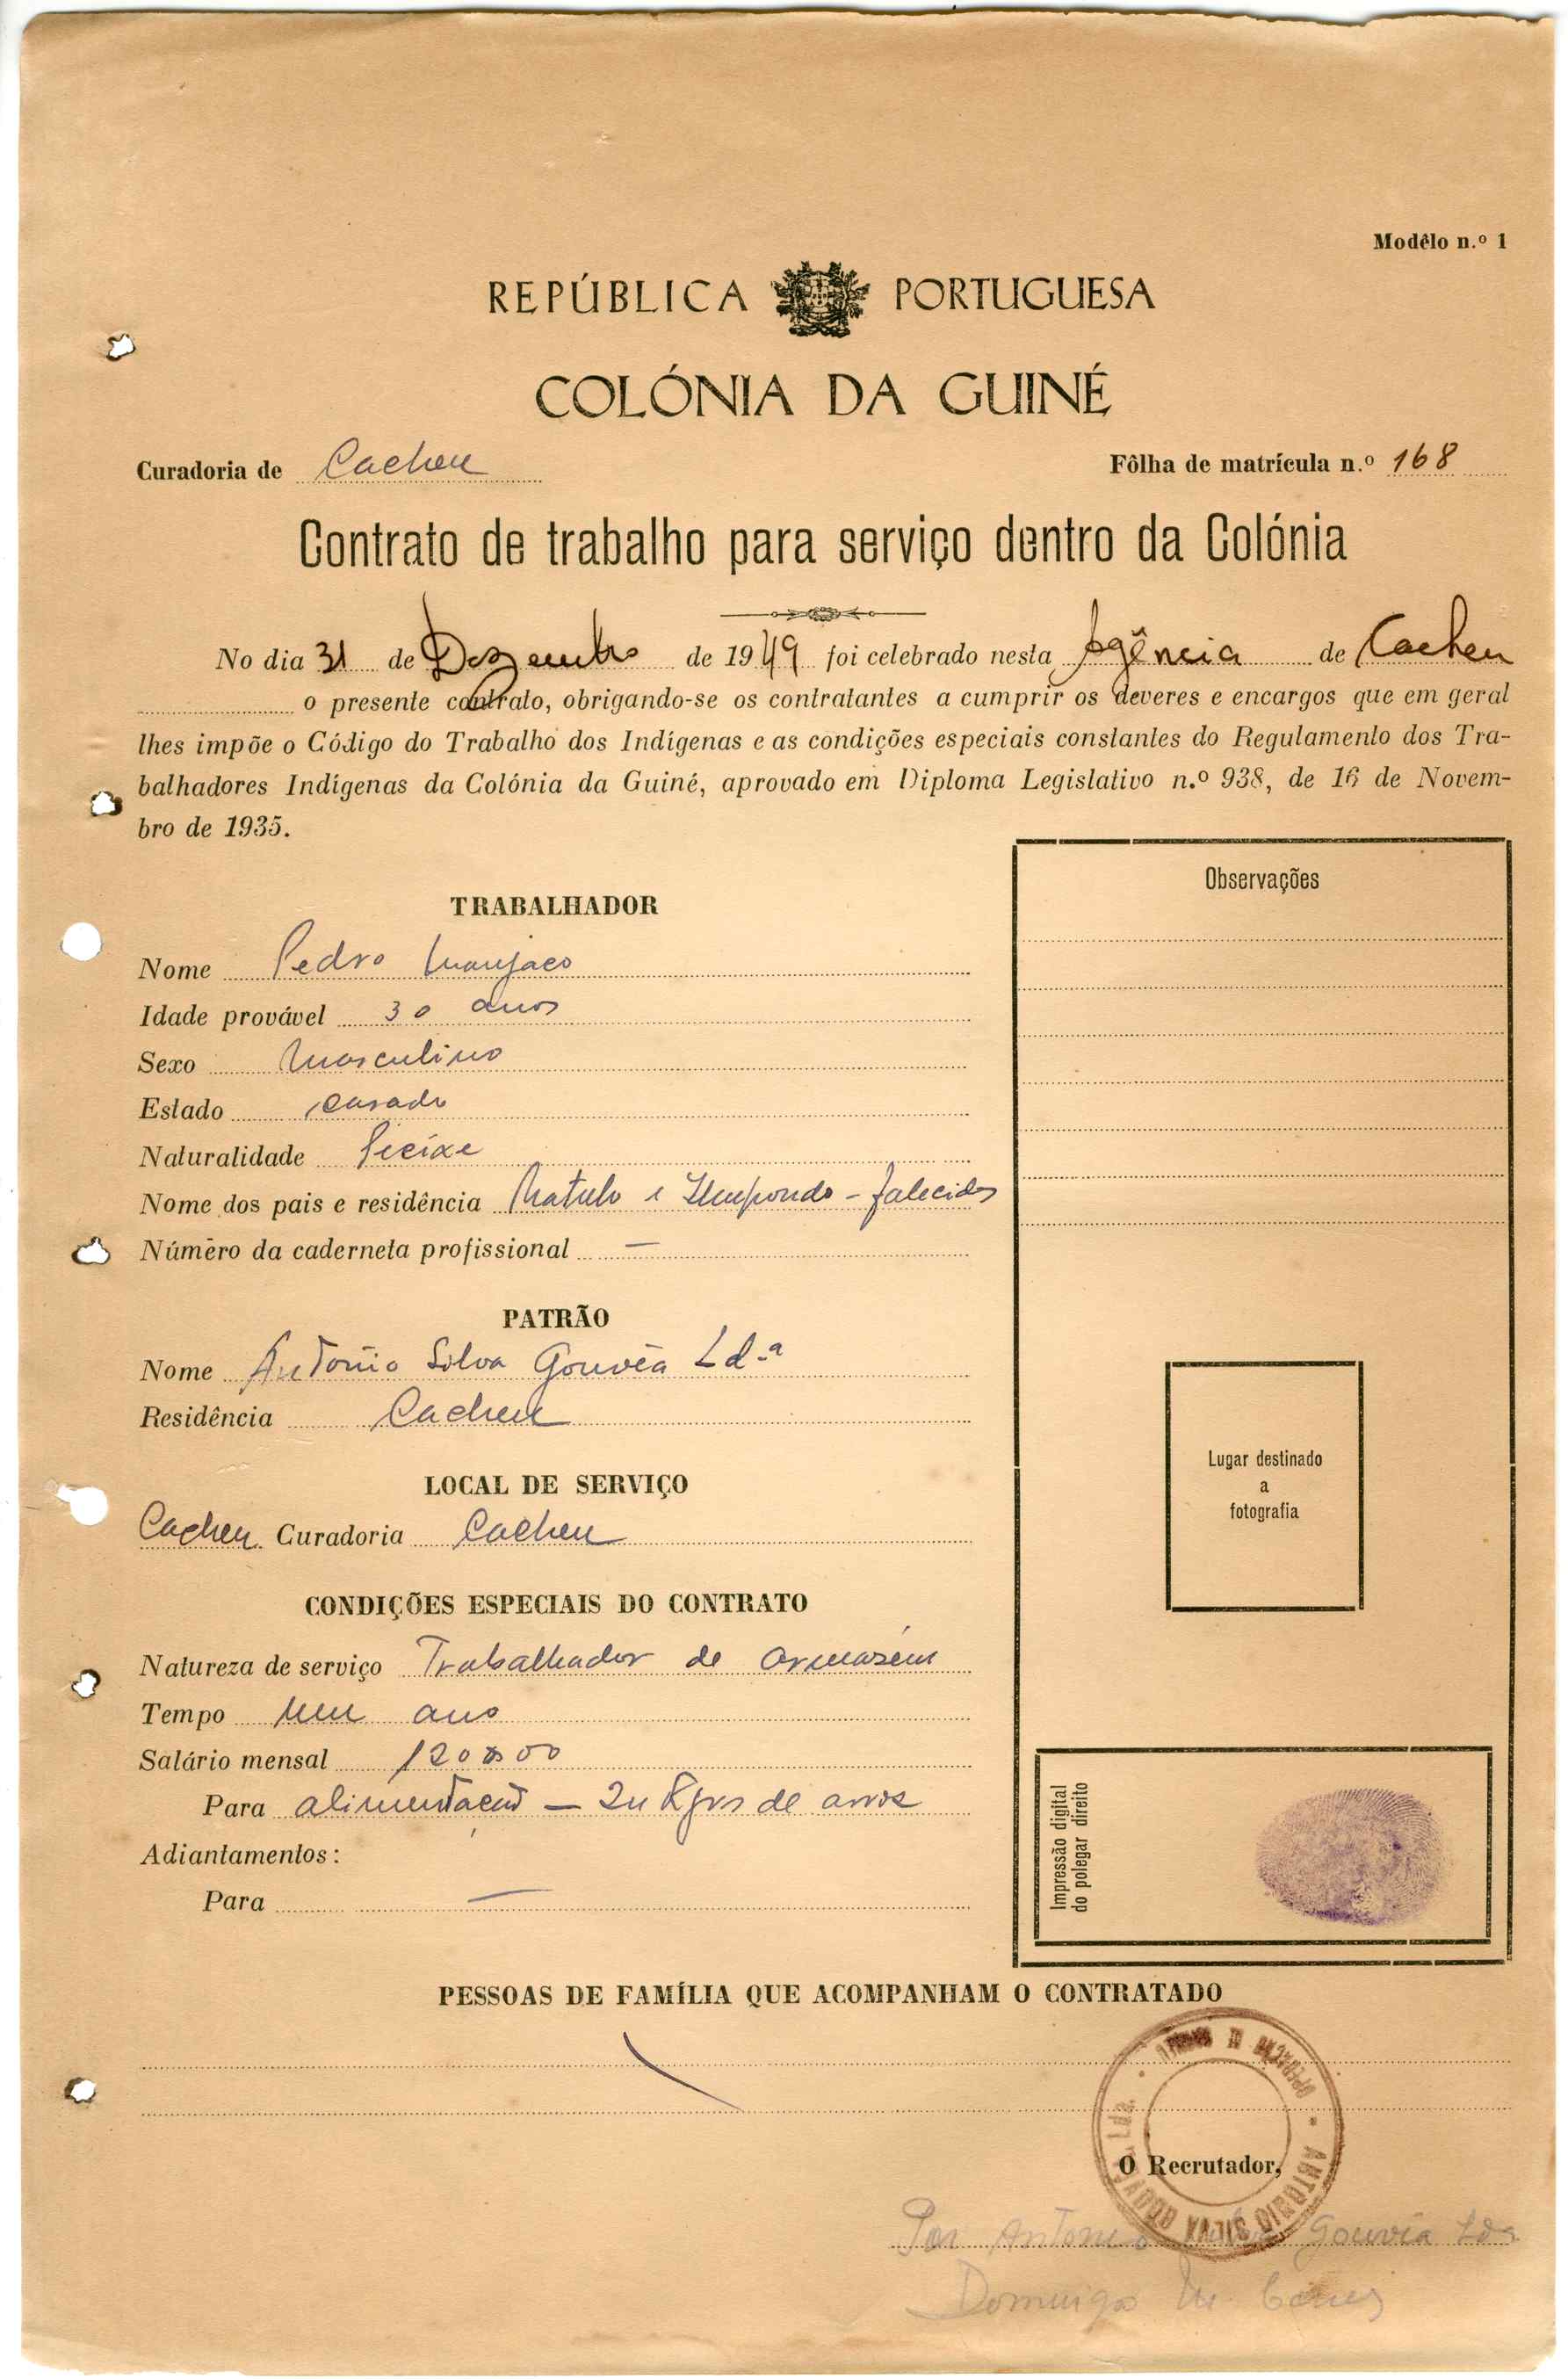 Modêlo n.º 1
REPÚBLICA PORTUGUESA
COLÓNIA DA GUINÉ
Curadoria de Cacheu Fôlha de matrícula n.º 168
Contrato de trabalho para serviço dentro da Colónia
No dia 31 de Dezembro de 1949 foi celebrado nesta Agência de Cacheu
o presente contrato, obrigando-se os contratantes a cumprir os deveres e encargos que em geral
lhes impõe o Código do Trabalho dos Indígenas e as condições especiais constantes do Regulamento dos Tra-
balhadores Indígenas da Colónia da Guiné, aprovado em Diploma Legislativo n.º 938, de 16 de Novem-
bro de 1935.
TRABALHADOR
Nome Pedro Manjaco
Idade provável 30 anos
Sexo Masculino
Estado casado
Naturalidade Pecixe
Nome dos pais e residência e - falecidos
Número da caderneta profissional —
PATRÃO
Nome António Silva Gouvêa Ld.ª
Residência Cacheu
LOCAL DE SERVIÇO
Cacheu Curadoria Cacheu
CONDIÇÕES ESPECIAIS DO CONTRATO
Natureza de serviço Trabalhador de armazém
Tempo um ano
Salário mensal 120$00
Para alimentação — de arroz
Adiantamentos:
Para —
Observações
Lugar destinado
a
fotografia
Impressão digital
do polegar direito
PESSOAS DE FAMÍLIA QUE ACOMPANHAM O CONTRATADO
ANTONIO SILVA GOUVEA, Lda.
O Recrutador,
Por Antonio Gouvêa Lda
Domingos